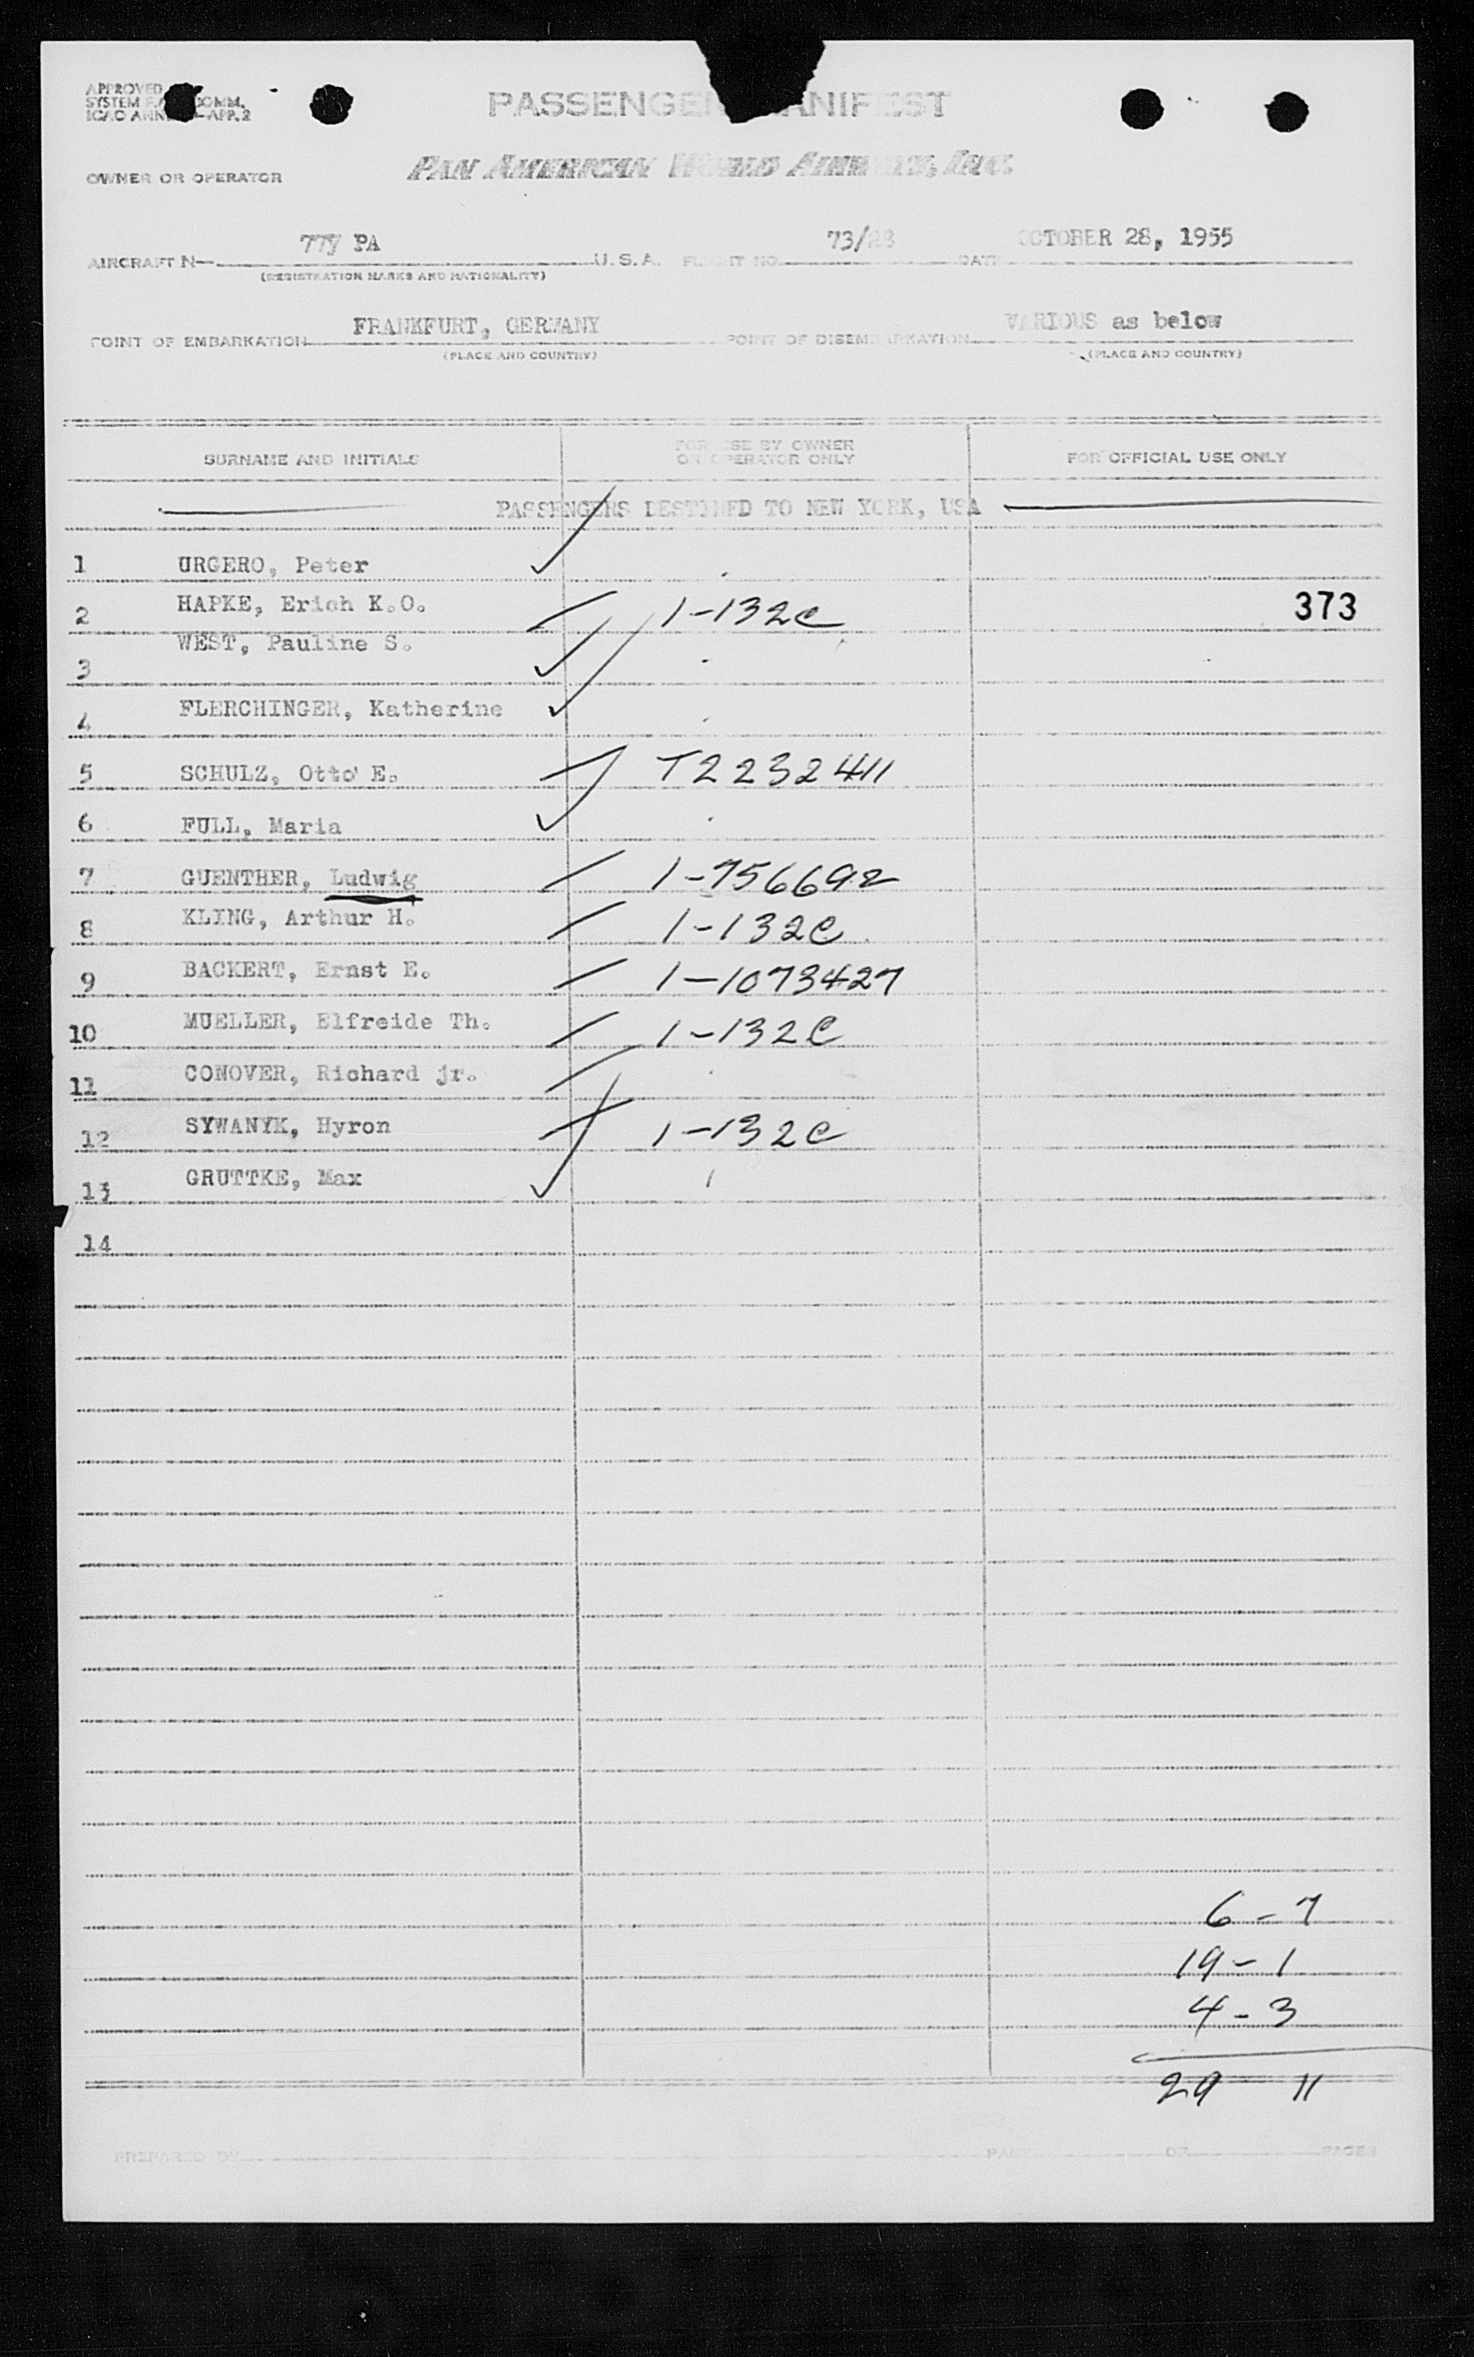 APPROVED
SYSTEM COMM.
ICAO APP. 2
PASSENGER MANIFEST
OWNER OR OPERATOR PAN AMERICAN WORLD AIRWAYS, INC.
AIRCRAFT N— 77Y PA U.S.A. FLIGHT NO. 73/28 DATE OCTOBER 28, 1955
(REGISTRATION MARKS AND NATIONALITY)
POINT OF EMBARKATION FRANKFURT, GERMANY POINT OF DISEMBARKATION VARIOUS as below
(PLACE AND COUNTRY) (PLACE AND COUNTRY)
SURNAME AND INITIALS FOR USE BY OWNER OR OPERATOR ONLY FOR OFFICIAL USE ONLY
PASSENGERS DESTINED TO NEW YORK, USA
1 URGERO, Peter
2 HAPKE, Erich K.O. 1-132c 373
3 WEST, Pauline S.
4 FLERCHINGER, Katherine
5 SCHULZ, Otto E. T2232411
6 FULL, Maria
7 GUENTHER, Ludwig 1-756692
8 KLING, Arthur H. 1-132C
9 BACKERT, Ernst E. 1-1073427
10 MUELLER, Elfreide Th. 1-132C
11 CONOVER, Richard jr.
12 SYWANYK, Hyron 1-132C
13 GRUTTKE, Max
14
6-7
19-1
4-3
29 11
PREPARED BY PAGE OF PAGES